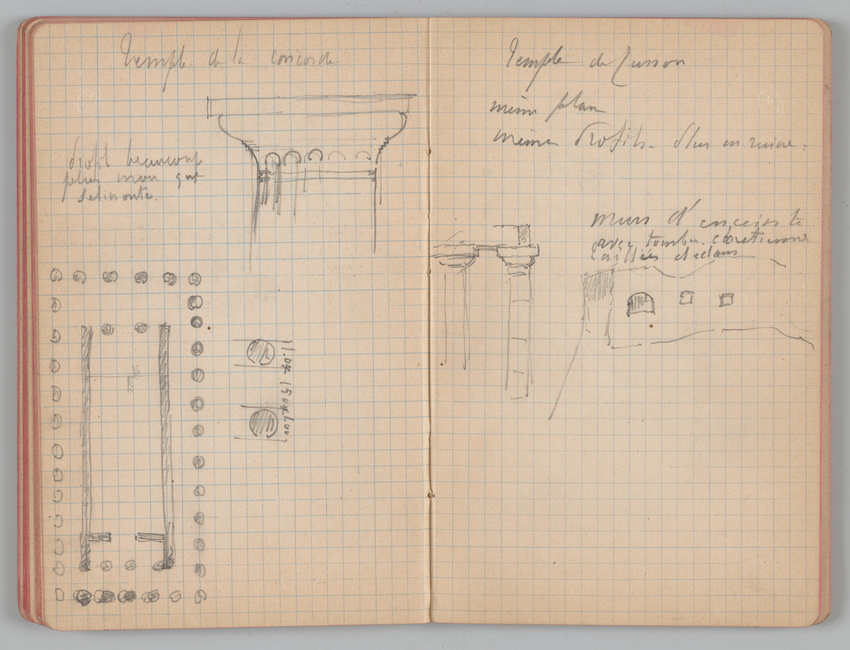 Temple de la concorde
profil beaucoup
plus mou que
Temple de Junon
même plan
même profils. Plus en ruine.
murs d'enceinte
avec tombes chrétienne
taillées dedans